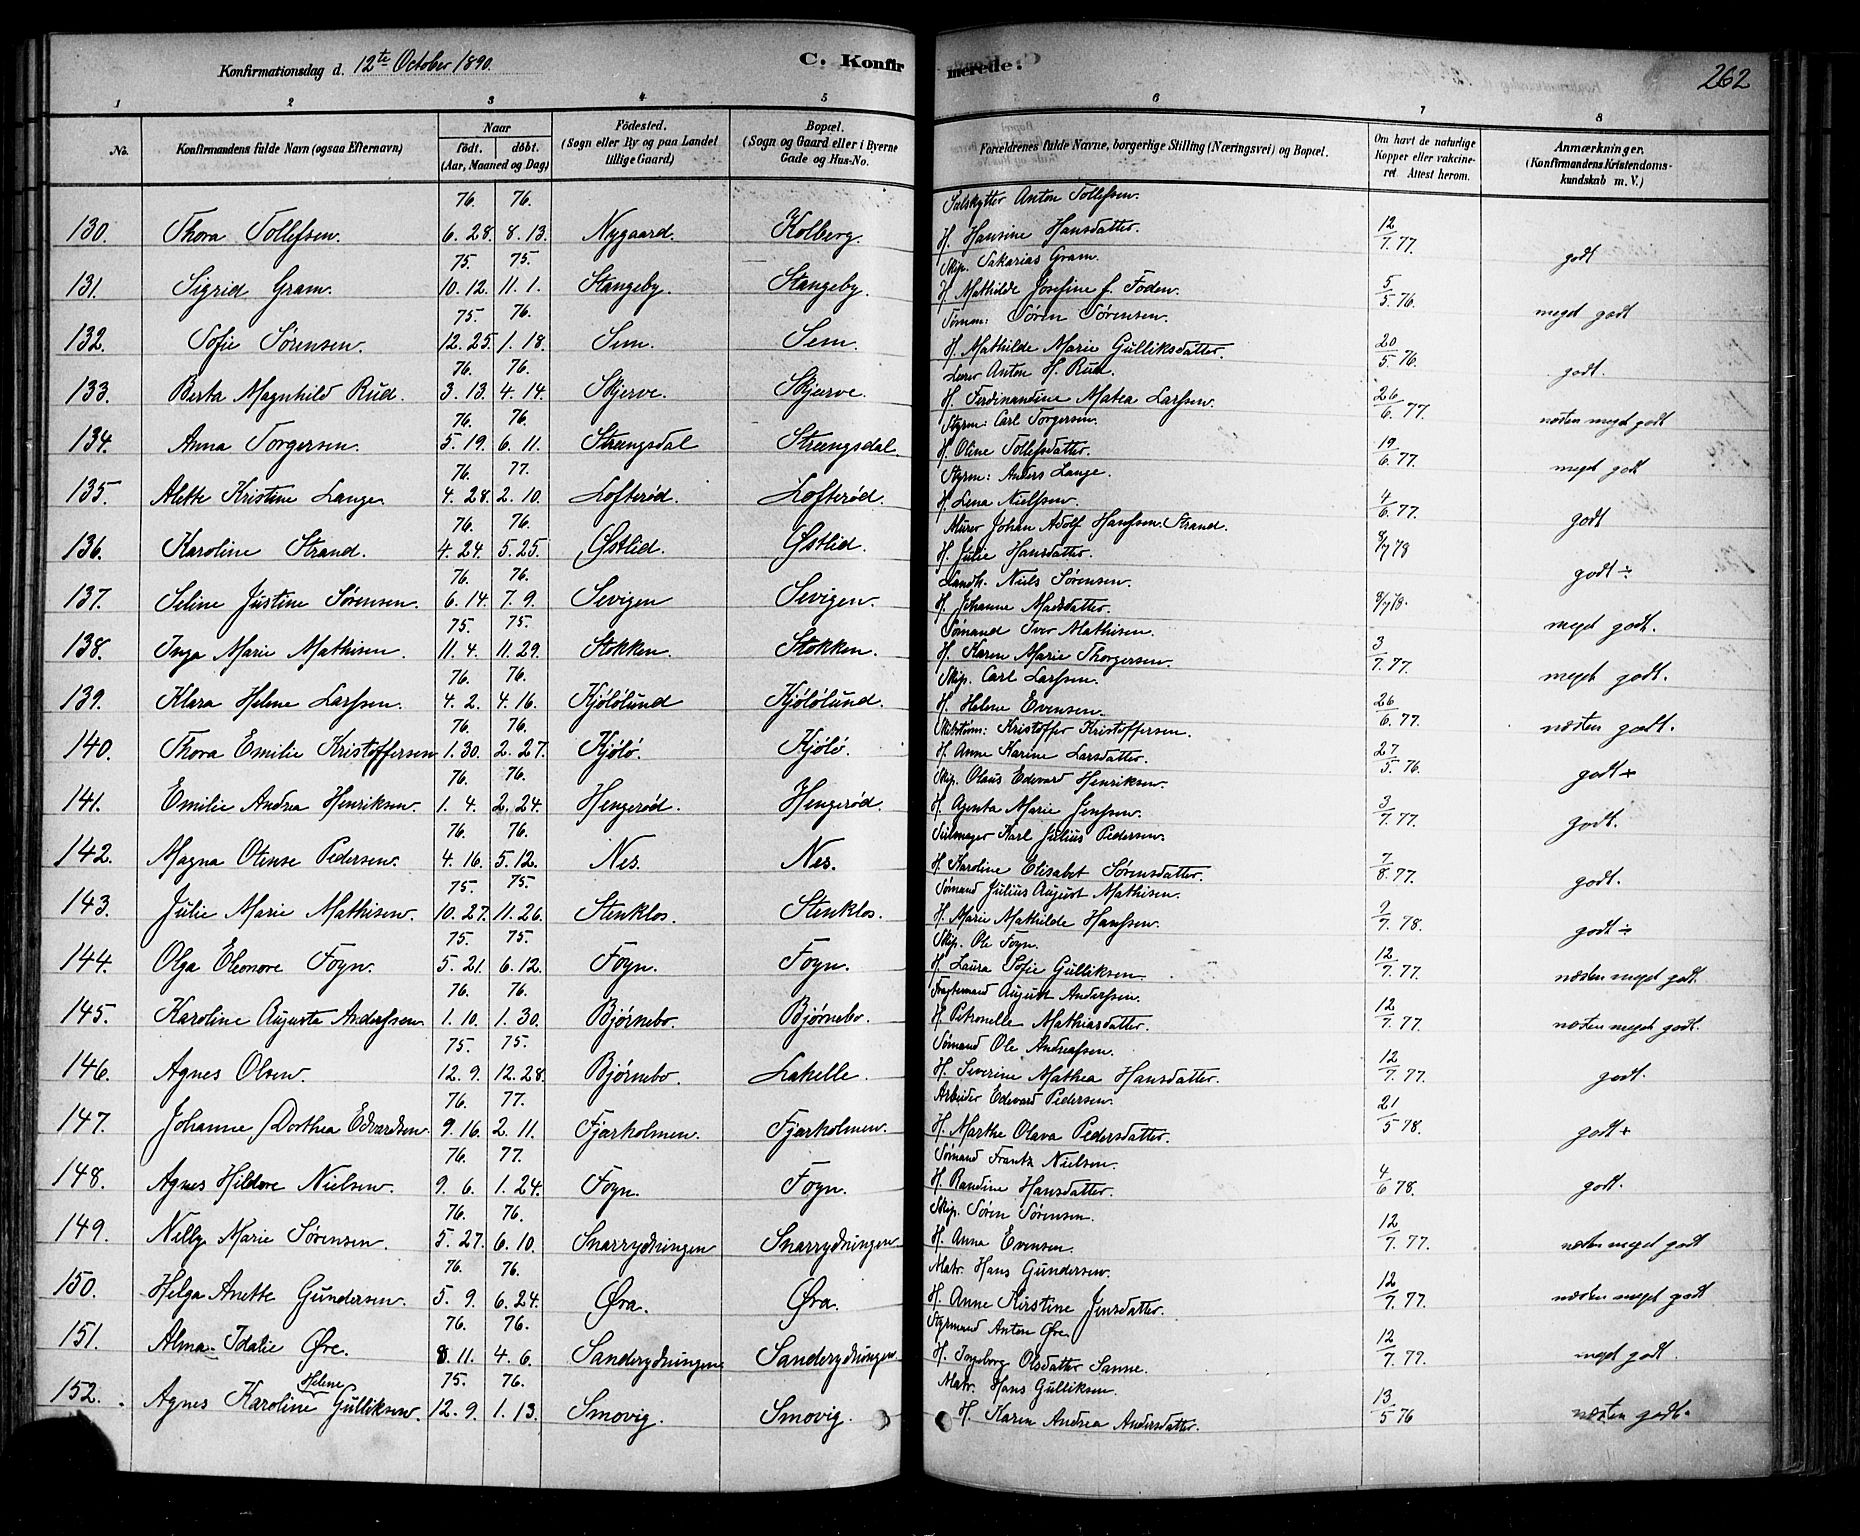 Konfirmationsdag d. 12te October 1890.
C. Konfirmerede.
262
1 2 3 4 5 6 7 8
No. Konfirmandens fulde Navn (ogsaa Efternavn) Naar født. døbt. (Aar, Maaned og Dag) Fødested. (Sogn eller By og paa Landet tillige Gaard) Bopæl. (Sogn og Gaard eller i Byerne Gade og Hus-No. Forældrenes fulde Navne, borgerlige Stilling (Næringsvei) og Bopæl. Om havt de naturlige Kopper eller vakcineret. Attest herom. Anmærkninger. (Konfirmandens Kristendomskundskab m. V.)
76. 76. Sælskytter Anton Tollefsen.
130. Thora Tollefsen. 6. 28. 8. 13. Nygaard. Kolberg. H. Hansine Hansdatter. 12/7. 77. godt
75. 75. Skip. Sakarias Gram.
131. Sigrid Gram. 10. 12. 11. 1. Stangeby. Stangeby. H. Mathilde Josefine f. Foden. 5/5 76. meget godt
75. 76. Sømm: Søren Sørensen.
132. Sofie Sørensen. 12. 25. 1. 18. Sem. Sem. H. Mathilde Marie Gulliksdatter. 20/5 76. godt.
76. 76. Lærer Anton H. Rud.
133. Berta Magnhild Rud. 3. 13. 4. 14. Skjerve. Skjerve. H. Ferdinandine Matea Larssen. 26/6. 77. næsten meget godt
76. 76. Styrm: Carl Torgersen.
134. Anna Torgersen. 5. 19. 6. 11. Strængsdal Strængsdal. H. Oline Tollefsdatter. 19/6. 77. meget godt
76. 77. Styrm: Anders Lange.
135. Alette Kristine Lange. 4. 28. 2. 10. Lofterød. Lofterød. H. Lena Nielssen. 4/6. 77. godt
76. 76. Murer Johan Adolf Hanssen Strand.
136. Karoline Strand. 4. 24. 5. 25. Østlid. Østlid. H. Julie Hansdatter. 8/7 78 godt ÷
76. 76. Landh. Niels Sørensen.
137. Seline Justine Sørensen. 6. 14. 7. 9. Sevigen Sevigen. H. Johanne Madsdatter. 8/7 78. meget godt.
75. 75. Sømand Iver Mathisen.
138. Inga Marie Mathisen. 11. 4. 11. 29. Stokken. Stokken. H. Karen Marie Thorgersen. 3/7. 77. meget godt.
76. 76. Skip. Carl Larssen.
139. Klara Helene Larssen. 4. 2. 4. 16. Kjølølund Kjølølund. H. Helene Evensen. 26/6. 77. næsten godt.
76. 76. Kristoffer Kristoffersen.
140. Thora Emilie Kristoffersen 1. 30. 2. 27. Kjølø. Kjølø. H. Anne Karine Larsdatter. 27/5. 76. godt +
76. 76. Skip. Olaus Edevard Henriksen.
141. Emilie Andrea Henriksen. 1. 4. 2. 24. Hengerød. Hengerød. H. Agenta Marie Jenssen. 3/7. 77. godt.
76. 76. Seilmager Karl Julius Pedersen.
142. Magna Otense Pedersen. 4. 16. 5. 12. Nes. Nes. H. Karoline Elisabet Sørensdatter. 7/8. 77. godt.
75. 75. Sømand Julius August Mathisen.
143. Julie Marie Mathisen. 10. 27. 11. 26. Stenklos. Stenklos. H. Marie Mathilde Hanssen. 2/7. 78. godt ÷
75. 75. Skip. Ole Foyn.
144. Olga Eleonore Foyn. 5. 21. 6. 12. Foyn. Foyn. H. Laura Sofie Gulliksen. 12/7. 77. næsten meget godt.
76. 76. Fragtemand August Anderssen.
145. Karoline Augusta Anderssen. 1. 10. 1. 30. Bjørnebo. Bjørnebo. H. Petronelle Mathiasdatter. 12/7. 77. næsten meget godt.
75. 75. Sømand Ole Andreassen.
146. Agnes Olsen. 12. 9. 12. 28. Bjørnebo. Lakelle. H. Severine Mathea Hansdatter. 12/7. 77. godt.
76. 77. Arbeider Edevard Pedersen.
147. Johanne Dorthea Edvardsen. 9. 16. 2. 11. Fjærholmen. Fjærholmen. H. Marthe Olava Pedersdatter. 21/5 78. godt +
76. 77. Sømand Frantz Nielsen.
148. Agnes Hildore Nielsen. 9. 6. 1. 24. Foyn. Foyn. H. Randine Hansdatter. 4/6 78. godt.
76. 76. Skip. Søren Sørensen.
149. Nilly Marie Sørensen. 5. 27. 6. 10. Snarrydningen Snarrydningen. H. Anna Evensen. 12/7. 77. næsten meget godt
76. 76. Matr. Hans Gundersen.
150. Helga Anette Gundersen. 5. 9. 6. 24. Øra. Øra. H. Anne Kirstine Jensdatter. 12/7. 77. næsten meget godt
76. 76. Styrmand Anton Øre.
151. Alma Idalie Øre. 8. 11. 4. 6. Sanderydningen Sanderydningen. H. Ingeborg Olsdatter Sanne. 12/7. 77. meget godt.
Helene 75. 76. Matr. Hans Gulliksen.
152. Agnes Karoline Gulliksen. 12. 9. 1. 13. Smovig. Smovig. H. Karen Andrea Andersdatter. 13/5 76 næsten godt.